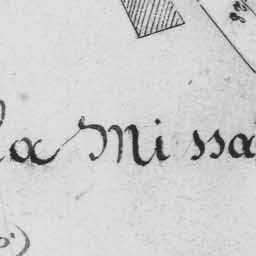 la Missa